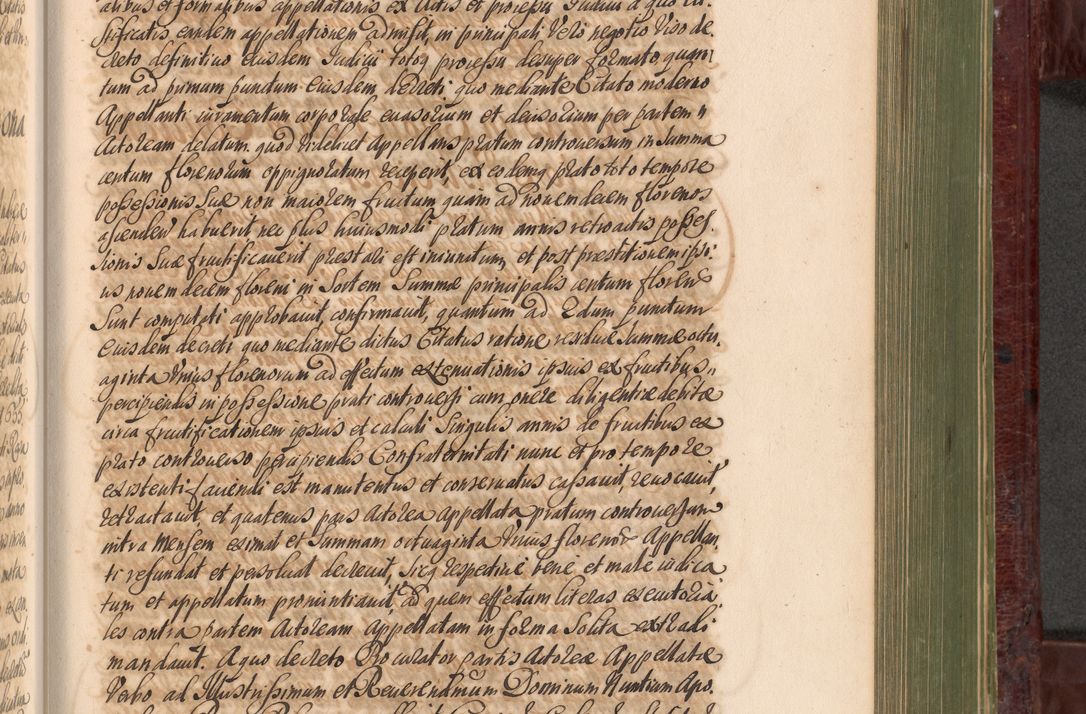 alibus et formalibus appellationis ex Actis et processu Iudicii a quo iu-
stificatis eandem appellationem admisit, in principali Vero negotio Viso de
creto definitivo eiusdem Iudicii totoq processu desuper formato quan
tum ad primum punctum eiusdem decreti quo mediante Citato moderno
Appellanti iuramentum corporale evasorium et decisorium per partem
Actoream delatum, quod videlicet Appellans pratum controversum in Summa
centum florenorum oppignoratum receperit, ex eodemq prato toto tempore
possessionis Suae non maiorem fructum quam ad novemdecem florenos
ascenden habuerit nec plus huiusmodi pratum annis retroactis posses-
sionis Suae fructificaverit praestari est iniunctum, et post praestitionem ipsi
us novemdecem floreni in Sortem Summae principalis centum floren
Sunt computati approbavit, confirmavit, quantum ad 2dum punctum
eiusdem decreti quo mediante dictus Citatus ratione residuae Summae octu
aginta Unius florenorum ad effectum extenuationis ipsius ex fructibus
percipiendis in possessione prati controversi cum onere diligentiae debitae
circa fructificationem ipsius et calculi Singulis annis de fructibus ex
prato controverso percipiendis Confraternitati nunc et pro tempore
existenti faciendi est manutentus et conservatus cassavit, revocavit,
retractavit, et quatenus pars Actorea appellata pratum controversum
intra Mensem eximat et Summam octuaginta Unius florenor Appellan
ti refundat et persolvat decrevit, sicq respective bene, et male iudica
tum et appellatum pronuntiavit, ad quem effectum literas executoria
les contra partem Actoream Appellatam in forma Solita extradi
mandavit. A quo decreto Procurator partis Actoreae Appellatae
Verbo ad Illustrissimum et Reverendmum Dominum Nuntium Apo.